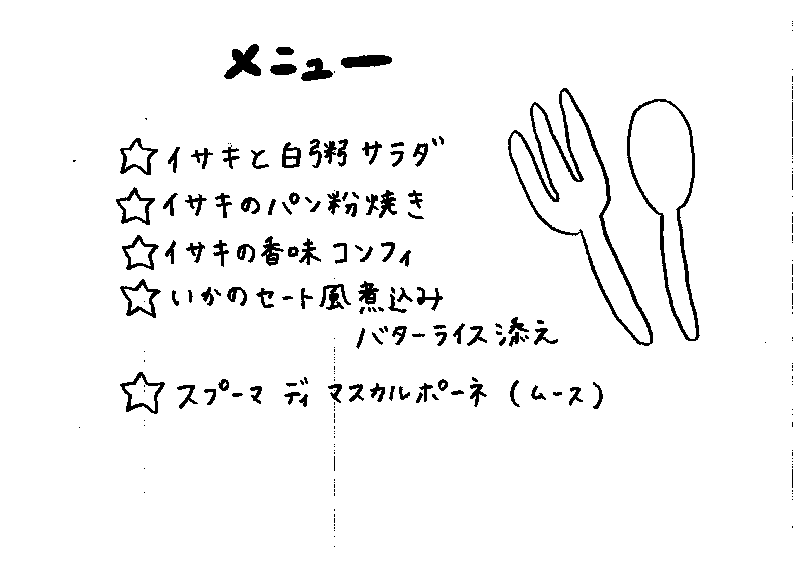 メニュー
☆イサキと白粥 サラダ
☆イサキのパン粉焼き
☆イサキの香味 コンフィ
☆いかのセート風煮込み
バターライス添え
☆スプーマ ディ マスカルポーネ (ムース)